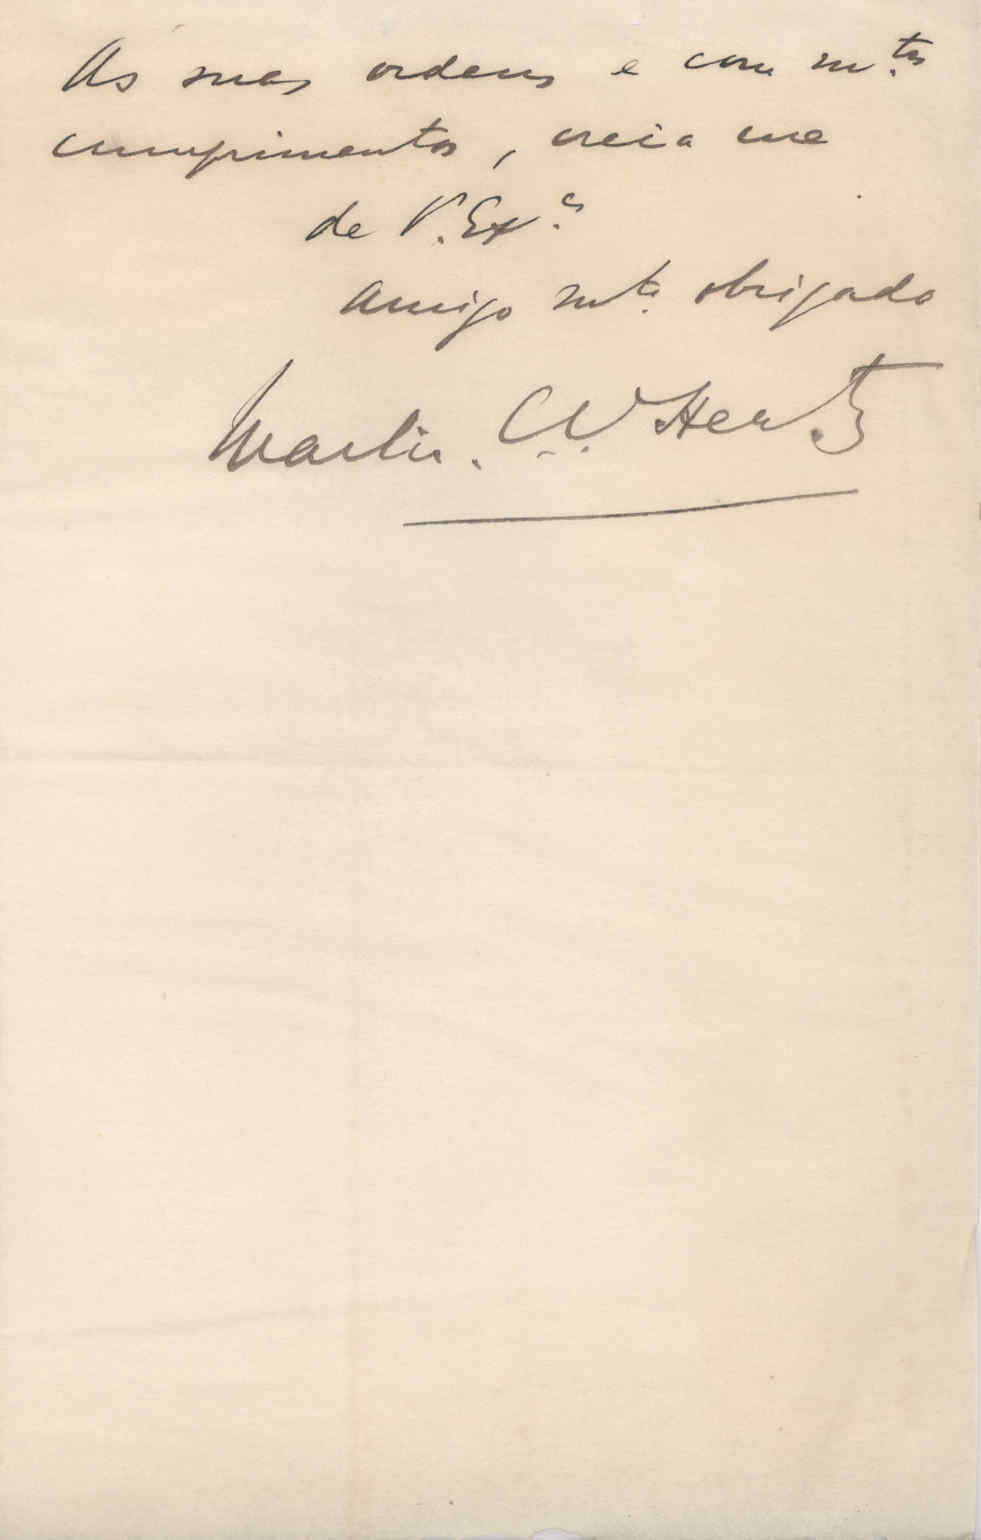 As suas ordens e com m.tos
cumprimentos, creia me
de V. Ex.a
amigo mt.o obrigado
Martin. W. Hertz